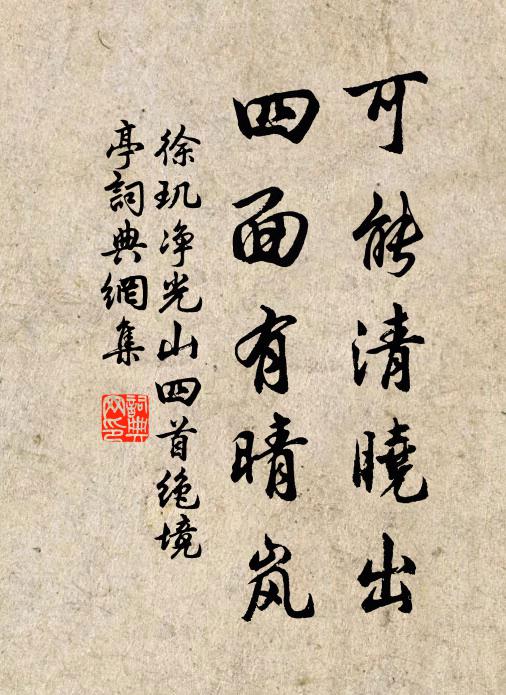 可能清曉出
四面有晴岚
徐玑净光山四首绝境
亭詞典網集
詞典网印